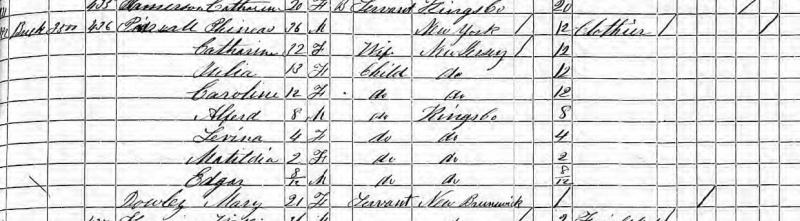 435 Catharin 20 F B Servant Kings Co 20
Brick 2500 436 Phineas 36 M New York / 12 Clothier / /
Catharine 32 F Wife New Jersey / 12
Julia 13 F Child do 12
Caroline 12 F do do 12
Alferd 8 M do Kings Co 8
Levina 4 F do do 4
Matildia 2 F do do 2
Edgar 8/12 M do do 8/12
Dowley Mary 21 F Servant New Brunswick / 1 /